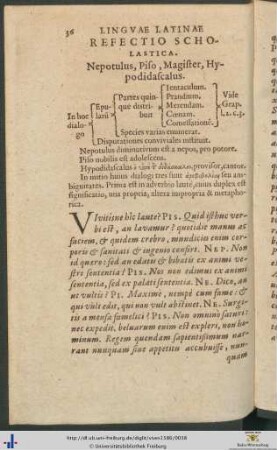 36 LINGVAE LATINAE
REFECTIO SCHO-
LASTICA.
Nepotulus, Piso, Magister, Hy-
podidascalus.
In hoc dialogo
Epularũ
Partes quinque distribuit
Ientaculum.
Prandium.
Merendam.
Cœnam.
Comessationẽ.
Vide
Grap.
l.2.c.3.
Species varias enumerat.
Disputationes conviviales instituit.
Nepotulus diminutivum est à nepos, pro putore.
Piso nobilis est adolescens.
Hypodidascalus à provisor, cantor.
In initio huius dialogi tres sunt seu am-
biguitates. Prima est in adverbio lautè, cuius duplex est
significatio, una propria, altera impropria & metapho-
rica.
VUltisne hîc lautè? PIS. Quid isthuc ver-
bi est, an lavamur? quotidie manus ac
faciem, & quidem crebro, mundicia enim cor-
poris & sanitati & ingenio confert. NEP. Non
id quero: sed an edatis & bibatis ex animi ve-
stri sententia? PIS. Nos non edimus ex animi
sententia, sed ex palati sententia. NE. Dico, an
ut vultis? PI. Maximè, nempè cum fame: &
qui vult edit, qui non vult abstinet. NE. Surgi-
tis à mensa famelici? PIS. Non omninò saturi:
nec expedit, beluarum enim est expleri, non ho-
minum. Regem quendam sapientissimum nar-
rant nunquam sine appetitu accubuisse, nun-
quam
http://dl.ub.uni-freiburg.de/diglit/vives1580/0038
© Universitätsbibliothek Freiburg
Baden-Württemberg